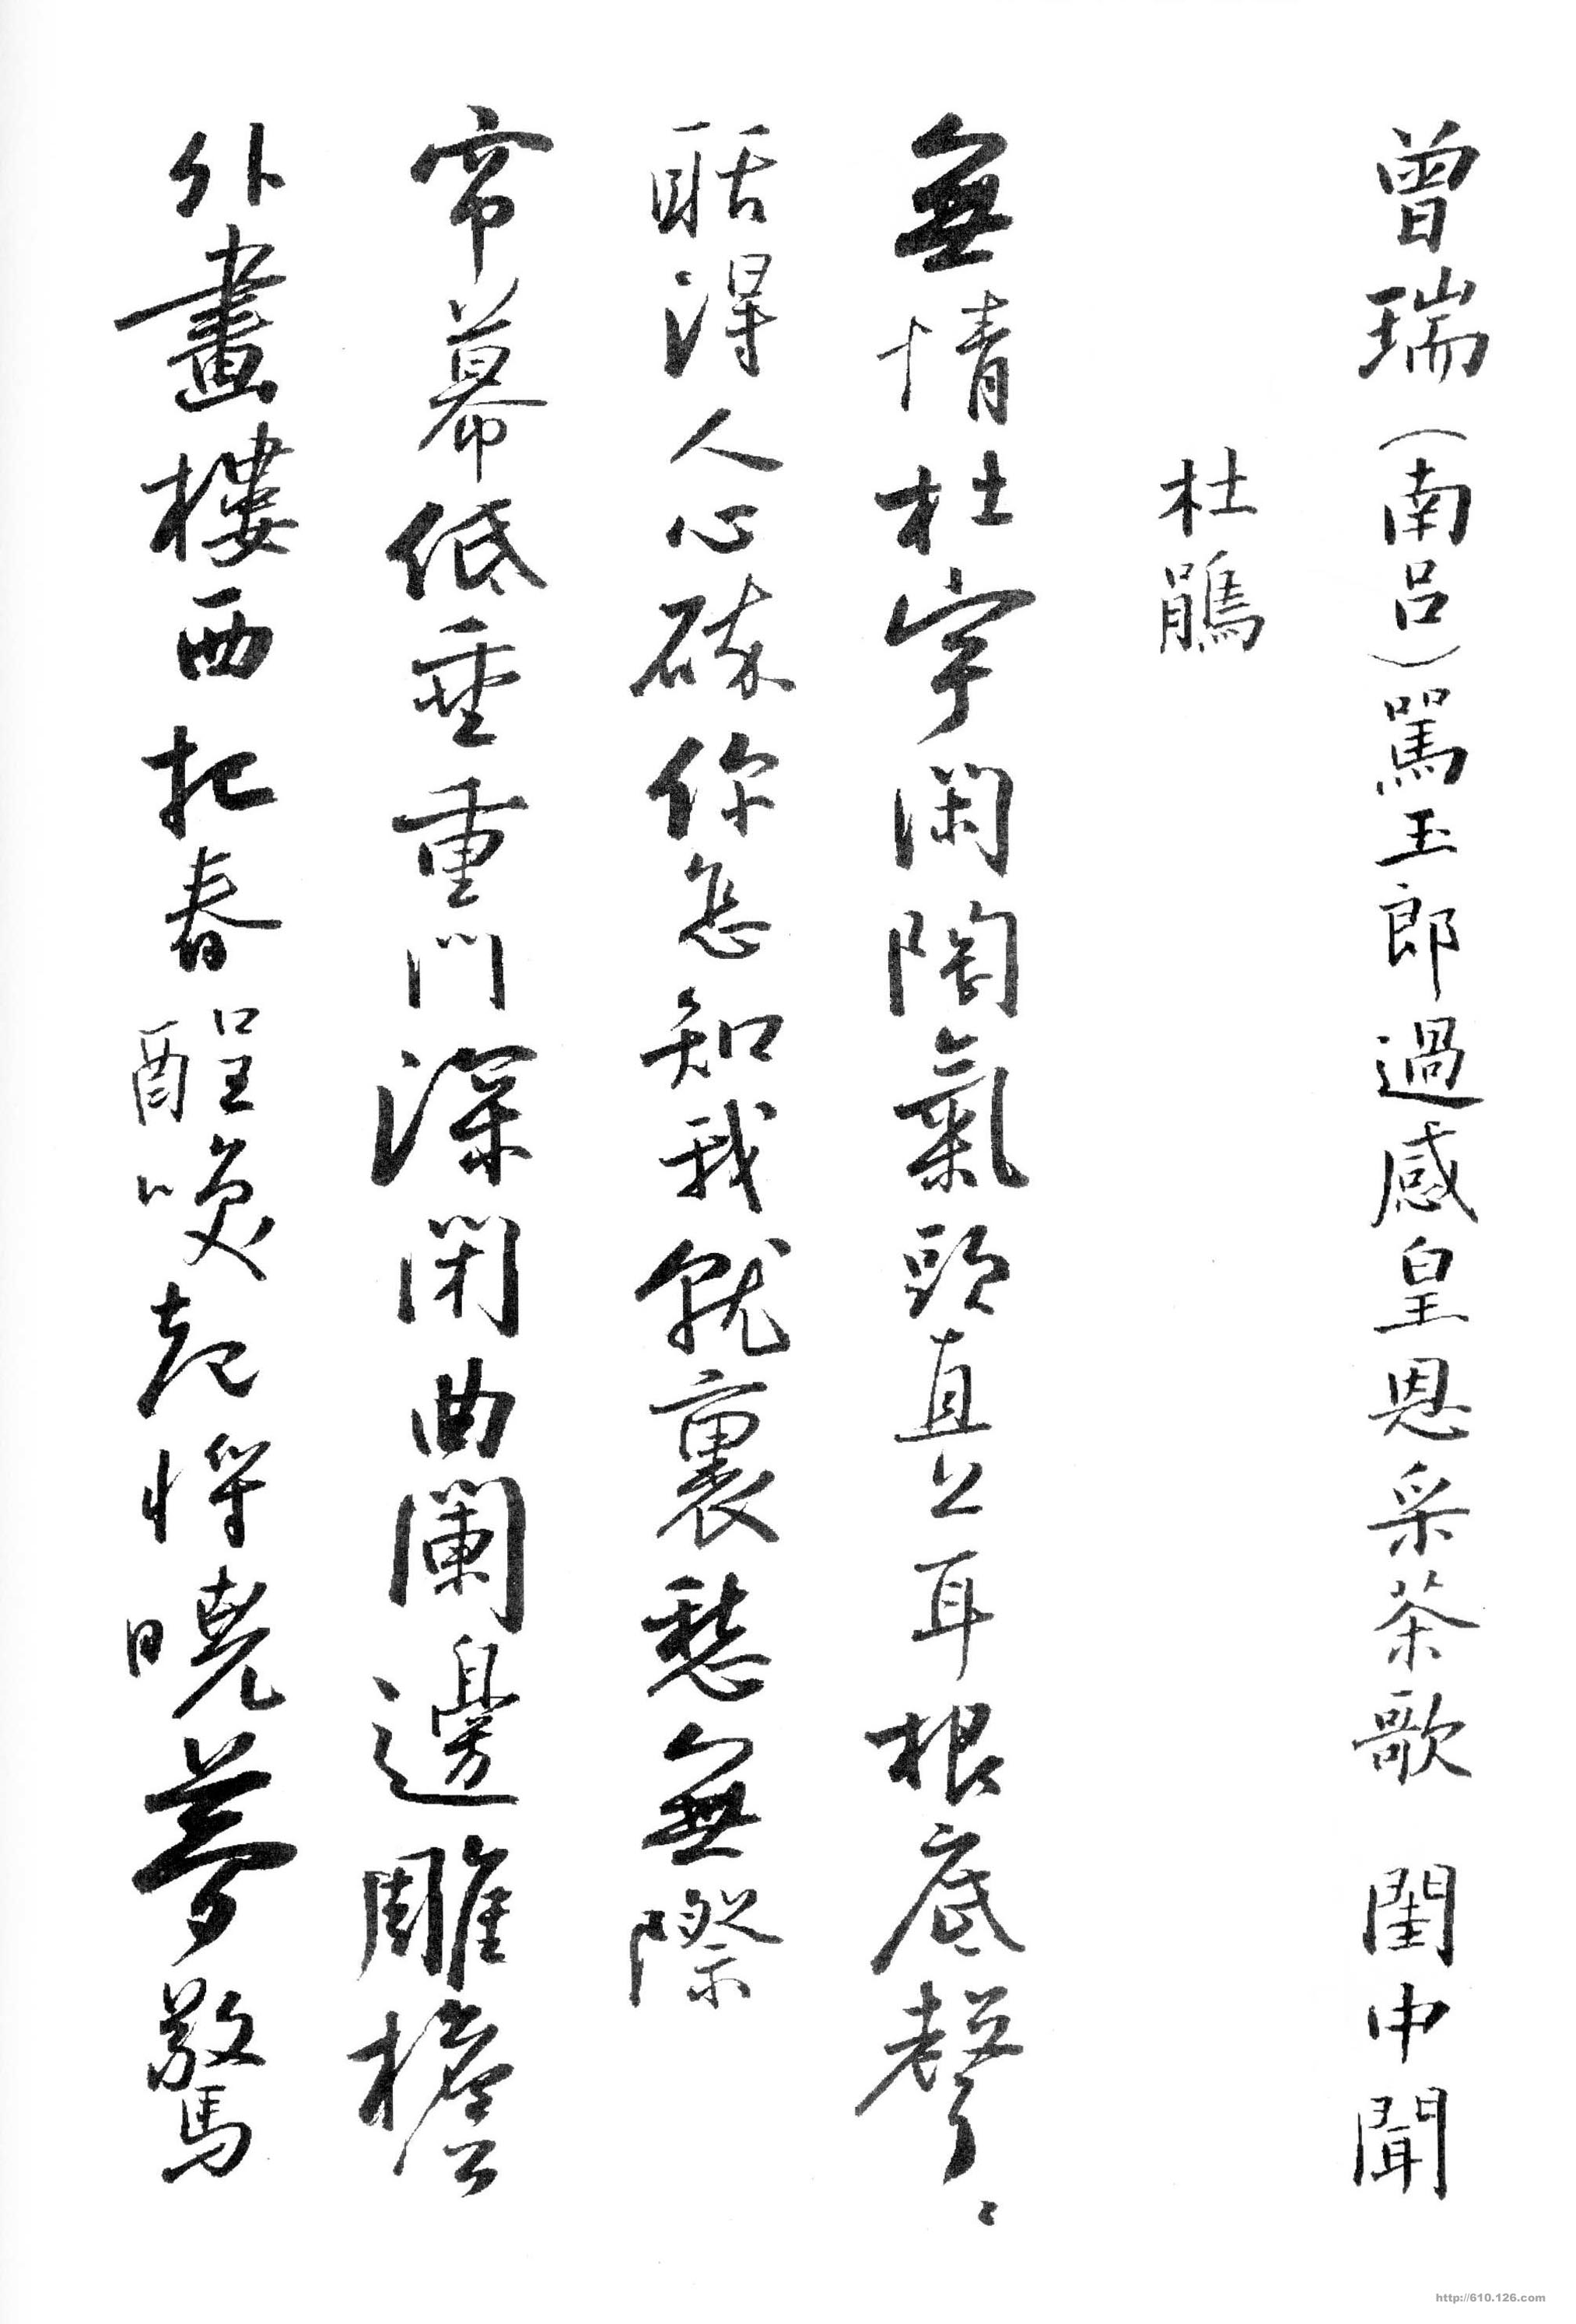 曾瑞（南呂）罵玉郎過感皇恩采茶歌 閨中聞
杜鵑
無情杜宇閑陶氣頭直上耳根底聲ミ
聒得人心碎你怎知我就裏愁無際
帘幕低垂重門深閉曲闌邊雕檐
外畫樓西把春酲喚起將曉夢驚
http://610.126.com